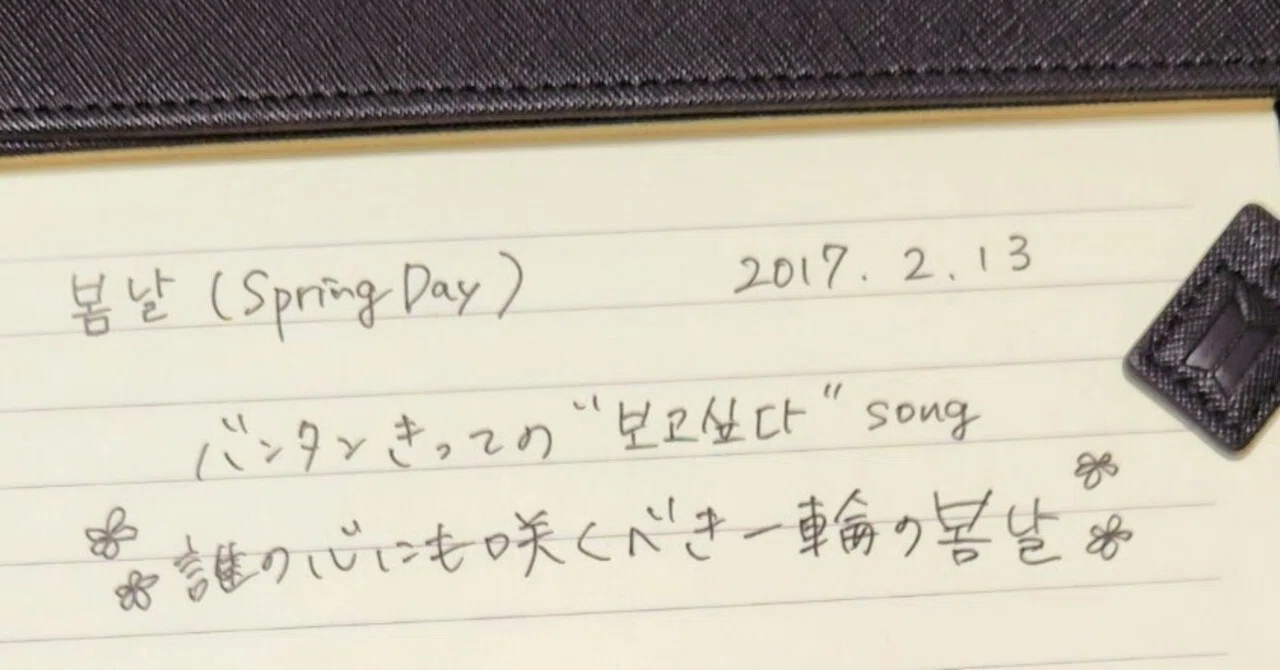 봄날 (Spring Day) 2017. 2. 13
バンタンきっての "보고싶다" song
誰の心にも咲くべき一輪の봄날